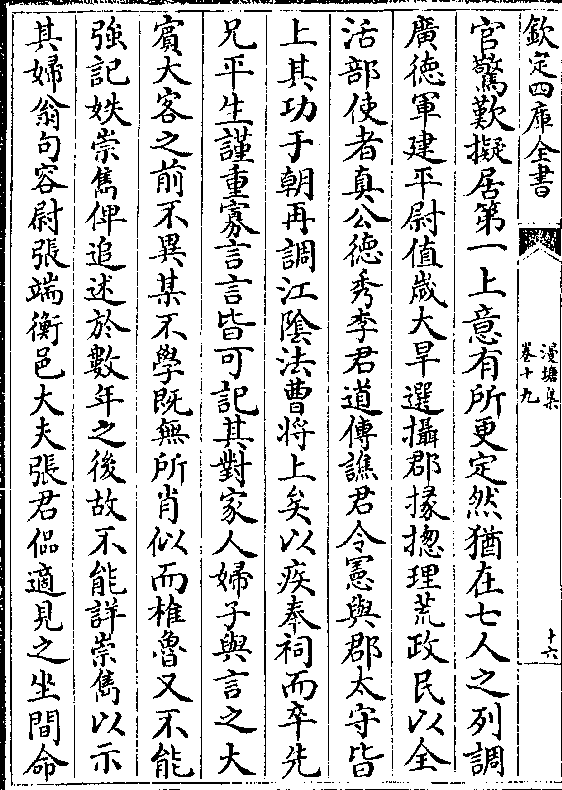 欽定四庫全書
漫塘集
卷十九
十六
官驚歎擬居第一上意有所更定然猶在七人之列調
廣徳軍建平尉值嵗大旱選攝郡掾揔理荒政民以全
活部使者真公徳秀李君道傳譙君令憲與郡太守皆
上其功于朝再調江隂法曹将上矣以疾奉祠而卒先
兄平生謹重寡言言皆可記其對家人婦子與言之大
賓大客之前不異某不學既無所肖似而椎魯又不能
強記姪崇雋俾追述於數年之後故不能詳崇雋以示
其婦翁句容尉張端衡邑大夫張君侣適見之坐間命